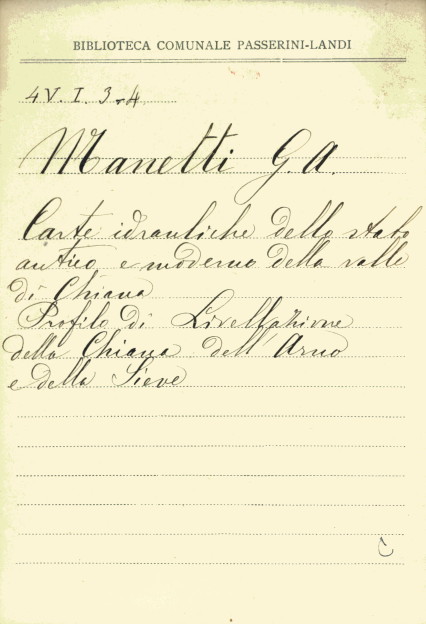 BIBLIOTECA COMUNALE PASSERINI-LANDI
4 V. I. 3-4
Manetti G. A.
Carte idrauliche dello stato
antico e moderno della valle
di Chiana
Profilo di Livellazione
della Chiana dell'Arno
e della Sieve
C